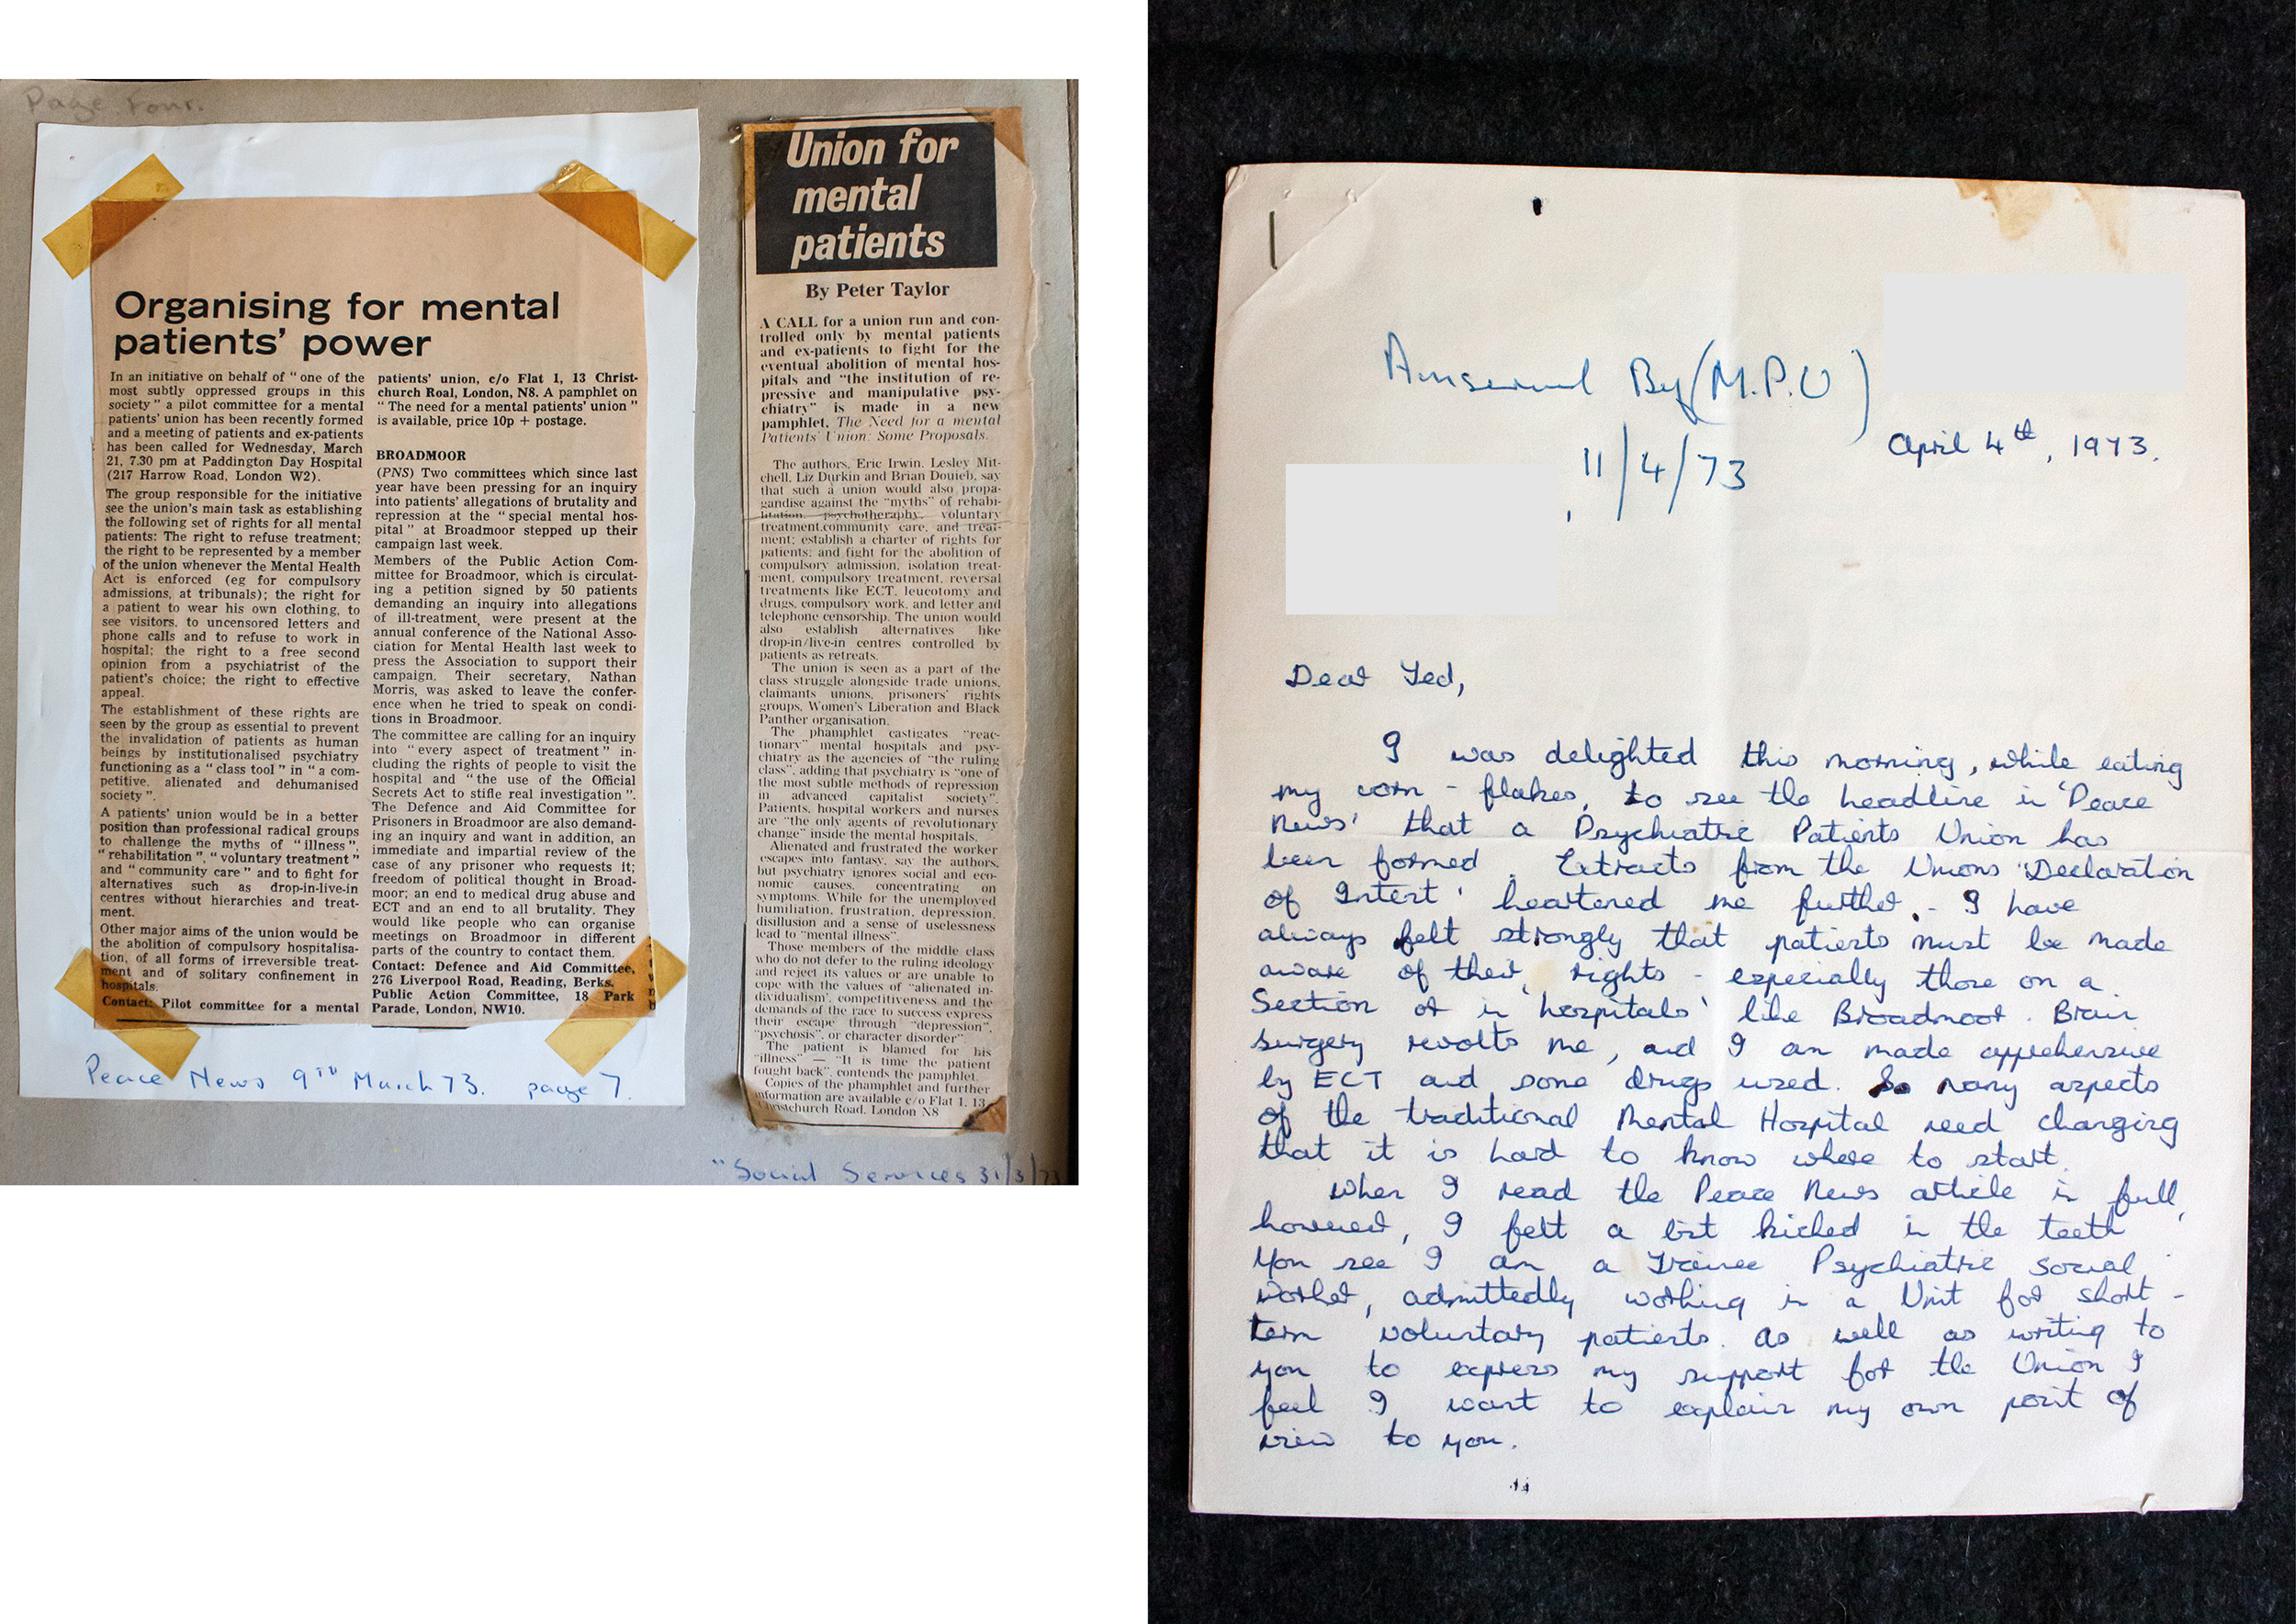 Page Four.
Organising for mental
patients' power
In an initiative on behalf of "one of the
most subtly oppressed groups in this
society" a pilot committee for a mental
patients' union has been recently formed
and a meeting of patients and ex-patients
has been called for Wednesday, March
21, 7.30 pm at Paddington Day Hospital
(217 Harrow Road, London W2).
The group responsible for the initiative
see the union's main task as establishing
the following set of rights for all mental
patients: The right to refuse treatment;
the right to be represented by a member
of the union whenever the Mental Health
Act is enforced (eg for compulsory
admissions, at tribunals); the right for
a patient to wear his own clothing, to
see visitors, to uncensored letters and
phone calls and to refuse to work in
hospital; the right to a free second
opinion from a psychiatrist of the
patient's choice; the right to effective
appeal.
The establishment of these rights are
seen by the group as essential to prevent
the invalidation of patients as human
beings by institutionalised psychiatry
functioning as a "class tool" in "a com-
petitive, alienated and dehumanised
society".
A patients' union would be in a better
position than professional radical groups
to challenge the myths of "illness",
"rehabilitation", "voluntary treatment"
and "community care" and to fight for
alternatives such as drop-in-live-in
centres without hierarchies and treat-
ment.
Other major aims of the union would be
the abolition of compulsory hospitalisa-
tion, of all forms of irreversible treat-
ment and of solitary confinement in
hospitals.
Contact: Pilot committee for a mental
patients' union, c/o Flat 1, 13 Christ-
church Roal, London, N8. A pamphlet on
"The need for a mental patients' union"
is available, price 10p + postage.
BROADMOOR
(PNS) Two committees which since last
year have been pressing for an inquiry
into patients' allegations of brutality and
repression at the "special mental hos-
pital" at Broadmoor stepped up their
campaign last week.
Members of the Public Action Com-
mittee for Broadmoor, which is circulat-
ing a petition signed by 50 patients
demanding an inquiry into allegations
of ill-treatment, were present at the
annual conference of the National Asso-
ciation for Mental Health last week to
press the Association to support their
campaign. Their secretary, Nathan
Morris, was asked to leave the confer-
ence when he tried to speak on condi-
tions in Broadmoor.
The committee are calling for an inquiry
into "every aspect of treatment" in-
cluding the rights of people to visit the
hospital and "the use of the Official
Secrets Act to stifle real investigation".
The Defence and Aid Committee for
Prisoners in Broadmoor are also demand-
ing an inquiry and want in addition, an
immediate and impartial review of the
case of any prisoner who requests it;
freedom of political thought in Broad-
moor; an end to medical drug abuse and
ECT and an end to all brutality. They
would like people who can organise
meetings on Broadmoor in different
parts of the country to contact them.
Contact: Defence and Aid Committee,
276 Liverpool Road, Reading, Berks.
Public Action Committee, 18 Park
Parade, London, NW10.
Peace News 9th March 73. page 7.
Union for
mental
patients
By Peter Taylor
A CALL for a union run and con-
trolled only by mental patients
and ex-patients to fight for the
eventual abolition of mental hos-
pitals and "the institution of re-
pressive and manipulative psy-
chiatry" is made in a new
pamphlet, The Need for a mental
Patients' Union: Some Proposals.
The authors, Eric Irwin, Lesley Mit-
chell, Liz Durkin and Brian Douieb, say
that such a union would also propa-
gandise against the "myths" of rehabi-
litation, psychotheraphy, voluntary
treatment,community care, and treat-
ment; establish a charter of rights for
patients; and fight for the abolition of
compulsory admission, isolation treat-
ment, compulsory treatment, reversal
treatments like ECT, leucotomy and
drugs, compulsory work, and letter and
telephone censorship. The union would
also establish alternatives like
drop-in/live-in centres controlled by
patients as retreats.
The union is seen as a part of the
class struggle alongside trade unions,
claimants unions, prisoners' rights
groups, Women's Liberation and Black
Panther organisation.
The phamphlet castigates "reac-
tionary" mental hospitals and psy-
chiatry as the agencies of "the ruling
class", adding that psychiatry is "one of
the most subtle methods of repression
in advanced capitalist society".
Patients, hospital workers and nurses
are "the only agents of revolutionary
change" inside the mental hospitals.
Alienated and frustrated the worker
escapes into fantasy, say the authors,
but psychiatry ignores social and eco-
nomic causes, concentrating on
symptoms. While for the unemployed
humiliation, frustration, depression,
disillusion and a sense of uselessness
lead to "mental illness".
Those members of the middle class
who do not defer to the ruling ideology
and reject its values or are unable to
cope with the values of "alienated in-
dividualism', competitiveness and the
demands of the race to success express
their escape through "depression",
"psychosis", or character disorder".
The patient is blamed for his
"illness" — "It is time the patient
fought back", contends the pamphlet.
Copies of the phamphlet and further
information are available c/o Flat 1, 13
Christchurch Road, London N8
"Social Services 31/3/73
Answered By (M.P.U)
11/4/73
April 4th, 1973.
Dear Ted,
I was delighted this morning, while eating
my corn-flakes, to see the headline in 'Peace
News' that a Psychiatric Patients Union has
been formed. Extracts from the Unions 'Declaration
of Intent' heartened me further. - I have
always felt strongly that patients must be made
aware of their rights - especially those on a
Section or in 'hospitals' like Broadmoor. Brain
surgery revolts me, and I am made apprehensive
by ECT and some drugs used. So many aspects
of the traditional Mental Hospital need changing
that it is hard to know where to start.
When I read the Peace News article in full,
however, I felt a bit kicked in the teeth
You see I am a Trainee Psychiatric Social
Worker, admittedly working in a Unit for short-
term voluntary patients. As well as writing to
you to express my support for the Union I
feel I want to explain my own point of
view to you.